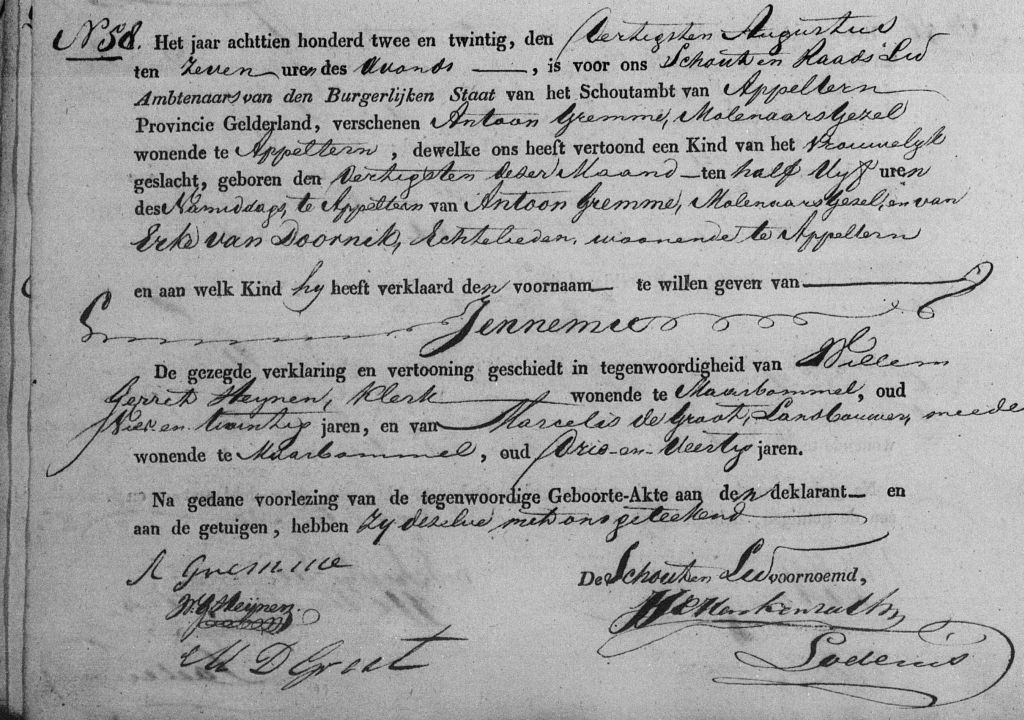 N 58. Het jaar achttien honderd twee en twintig, den Dertigsten Augustus
ten Zeven uren des Avonds —, is voor ons Schout en Raads Lid
Ambtenaars van den Burgerlijken Staat van het Schoutambt van Appeltern
Provincie Gelderland, verschenen Antoon Gremme, Molenaars Gezel
wonende te Appeltern, dewelke ons heeft vertoond een Kind van het Vrouwelyk
geslacht, geboren den dertigsten dezer Maand — ten half Vyf uren
des Namiddags, te Appeltern van Antoon Gremme, Molenaars Gezel, en van
Erke van Doornik, Echtelieden, woonende te Appeltern
en aan welk Kind hy heeft verklaard den voornaam — te willen geven van —
Jennemie
De gezegde verklaring en vertooning geschiedt in tegenwoordigheid van Willem
Gerrit Heijnen, Klerk — wonende te Maasbommel, oud
Vier en twintig jaren, en van Marcelis de Groot, Landbouwer, meede
wonende te Maasbommel, oud Drie-en-Veertig jaren.
Na gedane voorlezing van de tegenwoordige Geboorte-Akte aan den deklarant — en
aan de getuigen, hebben zy dezelve met ons geteekend
A Gremme
De Schout en Lid voornoemd,
W.G. Heijnen.
M D Groot